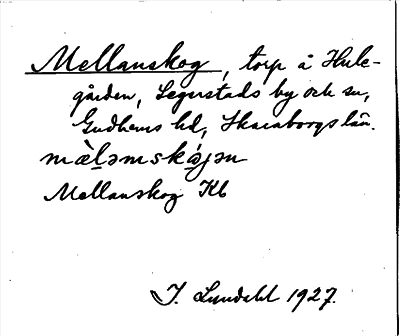 Mellanskog, torp å Hule-
gården, Segerstads by och sn,
Gudhems hd, Skaraborgs län.
mè̀lǝmskɷ́jǝn
Mellanskog Kb
I. Lundahl 1927.